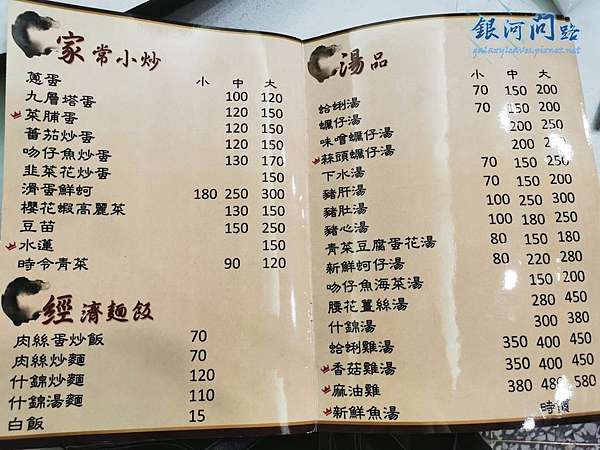 銀河問路
galaxyleaves.pixnet.net
家常小炒
小 中 大
蔥蛋
九層塔蛋 100 120
菜脯蛋 120 150
番茄炒蛋 120 150
吻仔魚炒蛋 130 170
韭菜花炒蛋 150
滑蛋鮮蚵 180 250 300
櫻花蝦高麗菜 130 150
豆苗 150 250
水蓮 150
時令青菜 90 120
經濟麵飯
肉絲蛋炒飯 70
肉絲炒麵 70
什錦炒麵 120
什錦湯麵 110
白飯 15
湯品
小 中 大
蛤蜊湯 70 150 200
蠣仔湯 70 150 200
味噌蠣仔湯 200 250
蒜頭蠣仔湯 200 250
下水湯 70 150 250
豬肝湯 70 150 200
豬肚湯 100 250 300
豬心湯 100 180 250
青菜豆腐蛋花湯 80 150 180
新鮮蚵仔湯 80 220 280
吻仔魚海菜湯 150 200
腰花薑絲湯 280 450
什錦湯 300 380
蛤蜊雞湯 350 400 450
香菇雞湯 350 400 450
麻油雞 380 480 580
新鮮魚湯 時價